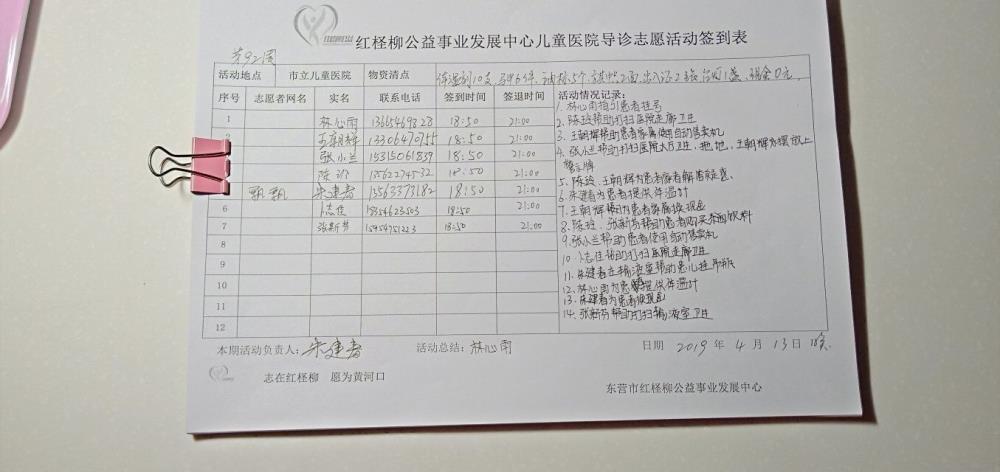 第92周
红柽柳公益事业发展中心儿童医院导诊志愿活动签到表
活动地点 市立儿童医院 物资清点 体温计10支, 马甲65件, 油标5个, 旗帜2面, 出入证2 台灯1盏, 现金0元,
序号 志愿者网名 实名 联系电话 签到时间 签退时间 活动情况记录:
1 林心雨 1365469328 18:50 21:00
王朝辉 13306470755 18:50 21:00
张小兰 15315061839 18:50 21:00
陈玲 15562274532 18:50 21:00
飘飘 朱建春 15563373182 18:50 21:00
6 卜志佳 18354623503 18:50 21:00
7 张新芳 15954751223 18:50 21:00
8
9
10
11
12
1. 林心雨指引患者挂号
2. 陈玲帮助打扫医院走廊卫生
3. 王朝辉帮助患者家属使用自动售卖机
4. 张小兰帮助打扫医院大厅卫生、拖地、王朝辉为摆放上
警示牌
5. 陈玲、王朝辉为患者家者解答疑惑
6. 朱建春为患者提供体温计
7. 王朝辉帮助为患者家属换现金
8. 陈玲、张新芳帮助患者购买柜面饮料
9. 张小兰帮助患者使用自动售卖机
10. 卜志佳帮助打扫医院走廊卫生
11. 朱建春在输液室帮助患儿挂吊瓶
12. 林心雨为患者提供体温计
13. 朱建春为患者换现金
14. 张新芳帮助打扫输液室卫生
本期活动负责人: 朱建春 活动总结: 林心雨 日期 2019 年 4 月 13 日 晚
志在红柽柳 愿为黄河口
东营市红柽柳公益事业发展中心